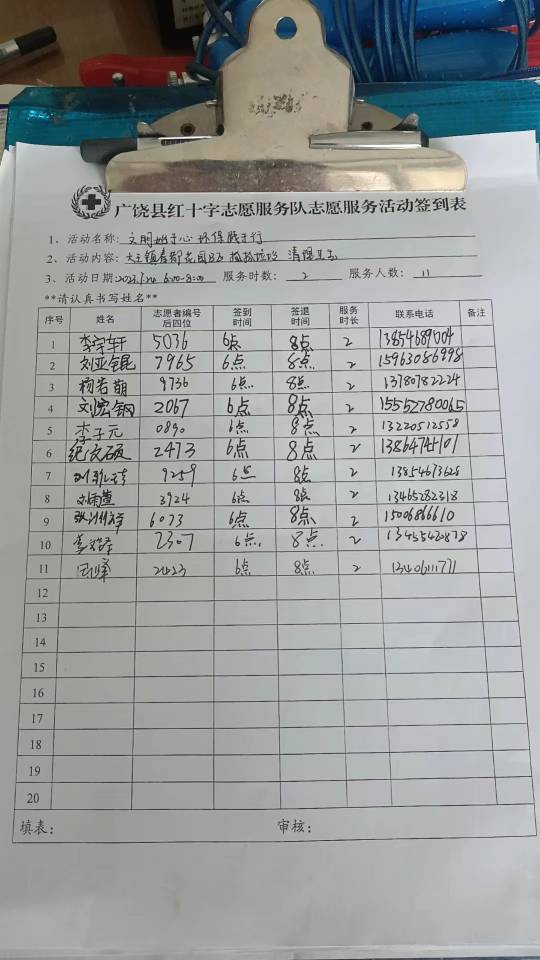 广饶县红十字志愿服务队志愿服务活动签到表
1、活动名称: 文明始于心 环保践于行
2、活动内容: 大王镇 花园 捡拾垃圾 清理卫生
3、活动日期: 6:00-8:00 服务时数: 2 服务人数: 11
**请认真书写姓名**
序号 姓名 志愿者编号后四位 签到时间 签退时间 服务时长 联系电话 备注
1 李宇轩 5036 6点 8点 2
2 刘亚锟 7965 6点 8点 2 15963086998
3 杨若萌 9736 6点 8点 2 13780782224
4 刘宏钢 2067 6点 8点 2 15552780065
5 李子元 0890 6点 8点 2 13220512558
6 纪文硕 2473 6点 8点 2
7 9259 6点 8点 2 13854673628
8 刘雨萱 3924 6点 8点 2 13465282318
9 6073 6点 8点 2 15006866610
10 2307 6点. 8点. 2 13455422878
11 周峰 2423 6点 8点 2 13406111771
12
13
14
15
16
17
18
19
20
填表: 审核: